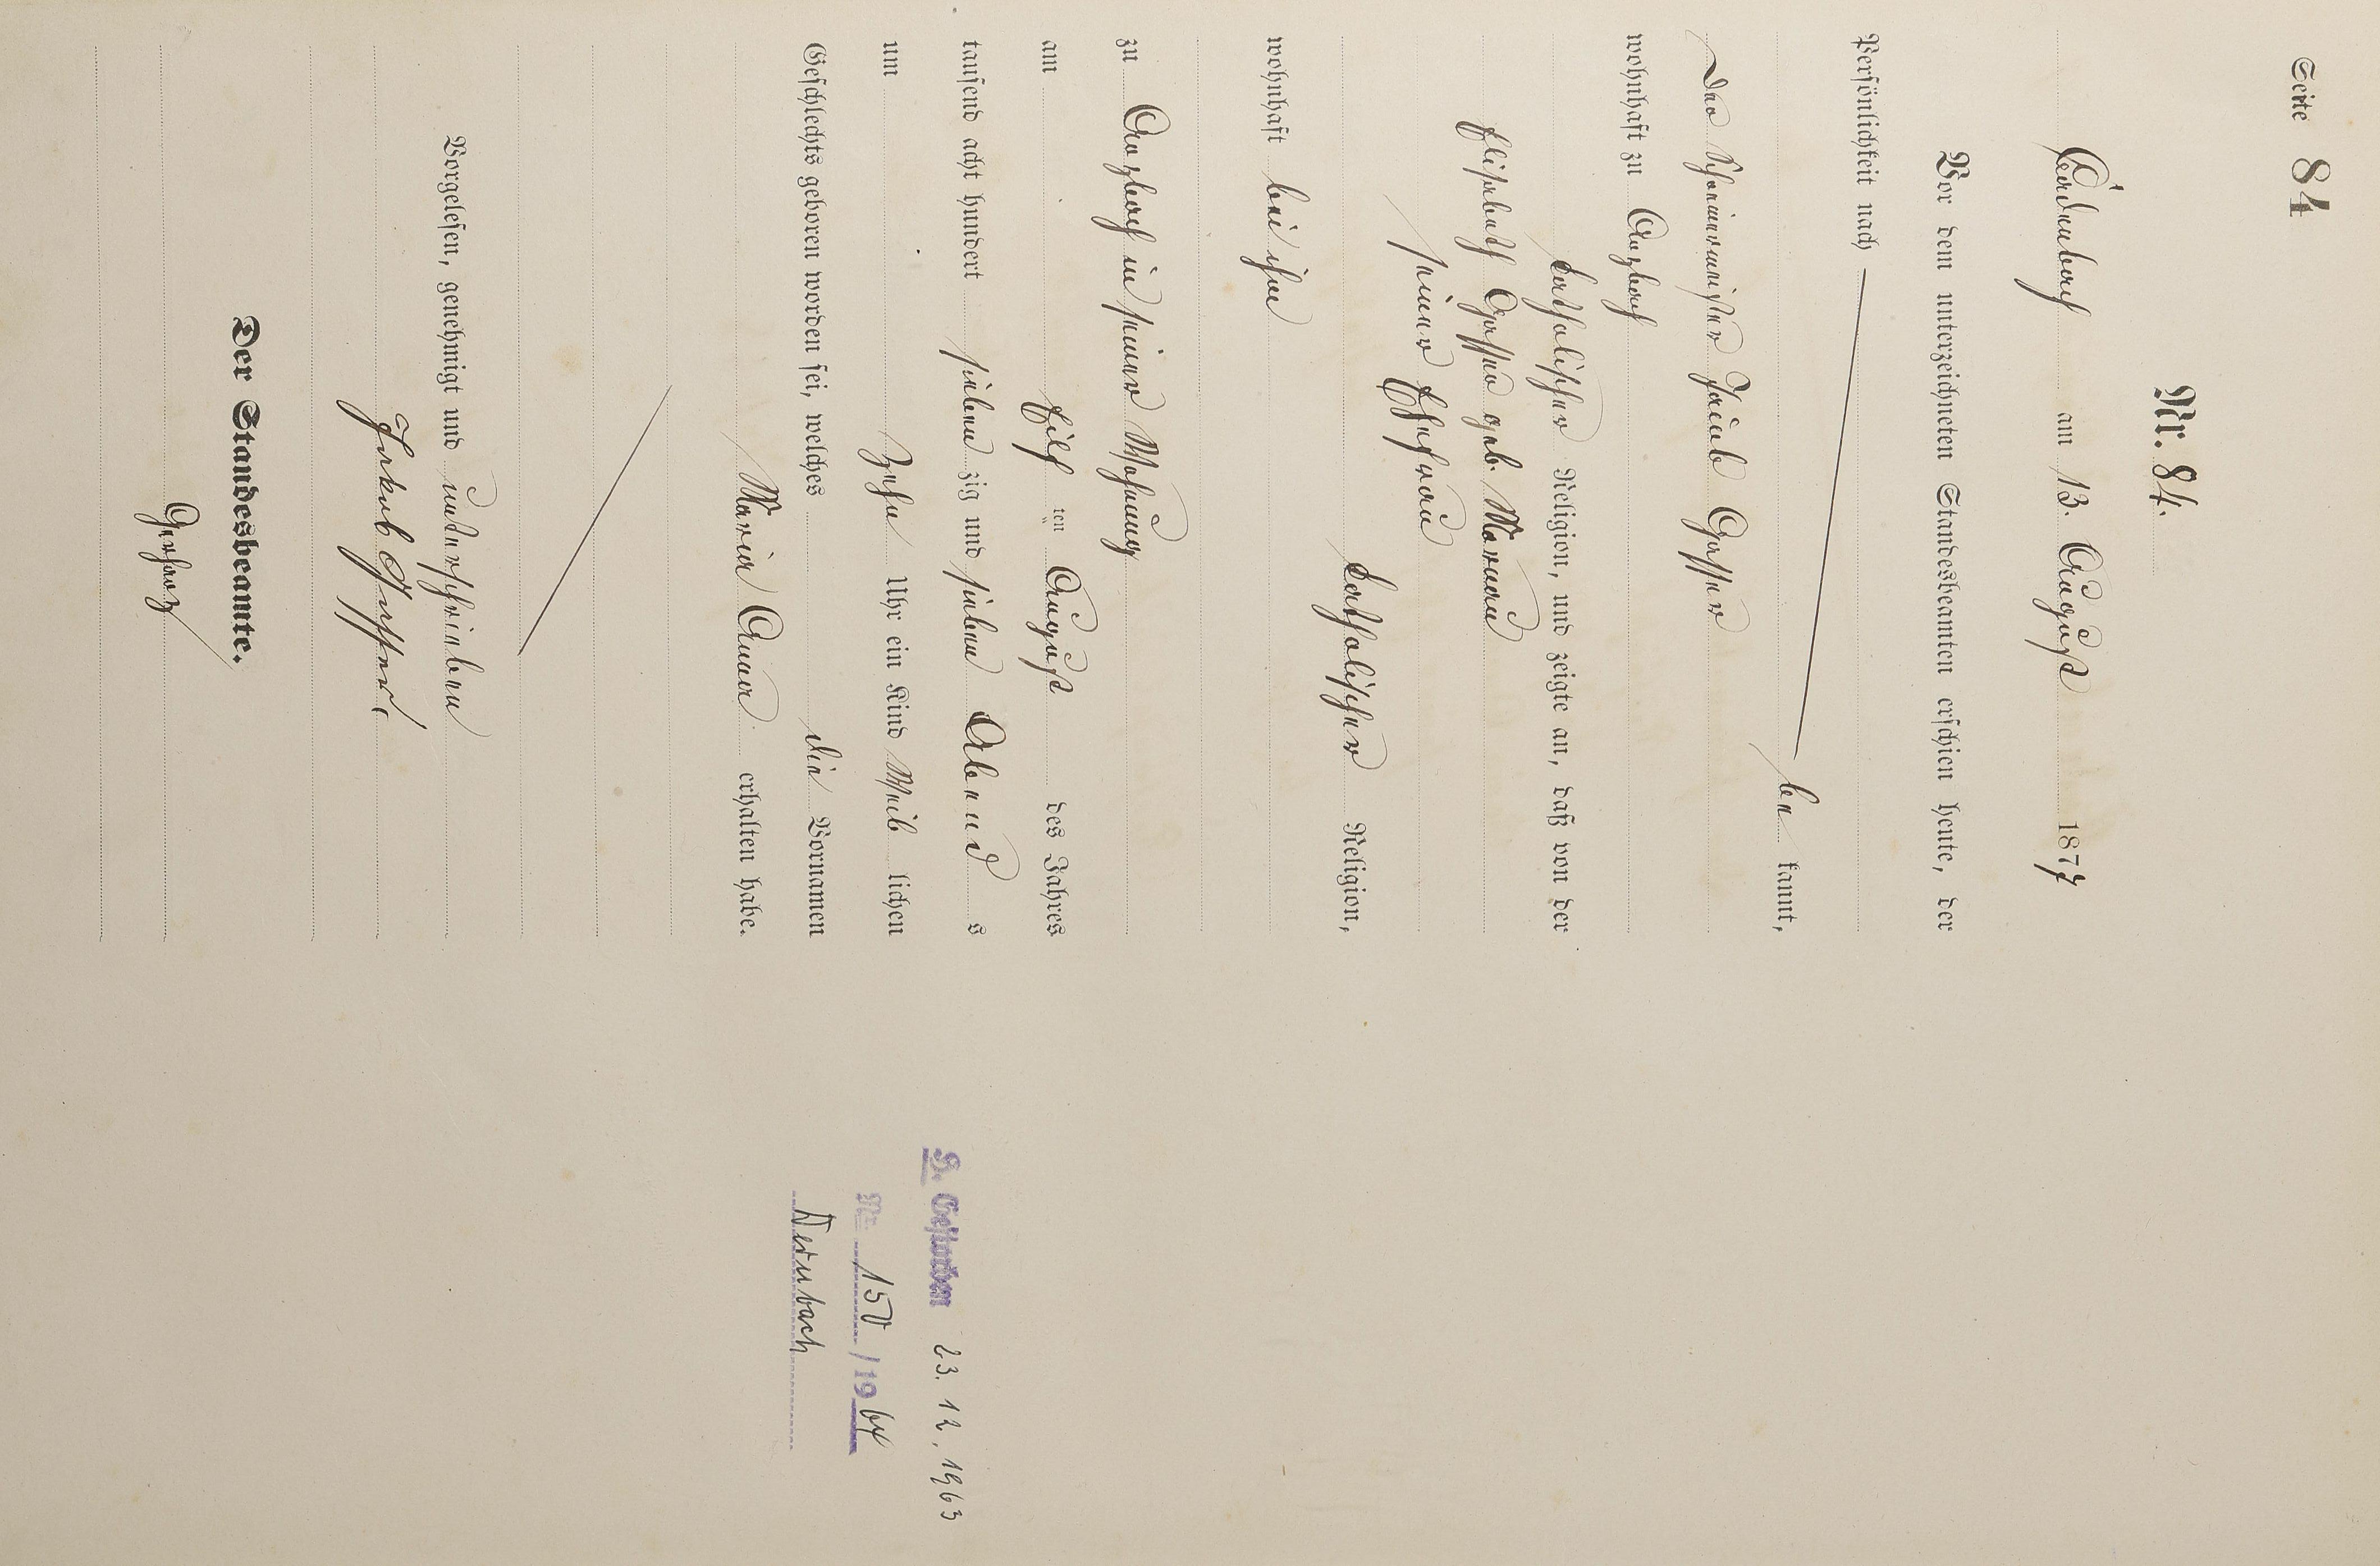 Seite 84
Nr. 84.
am 13. August 1877
Vor dem unterzeichneten Standesbeamten erschien heute, der
Persönlichkeit nach
be kannt,
der Jacob Gasser
wohnhaft zu Arzbach
katholischer Religion, und zeigte an, daß von der
Elisabeth Gasser geb.
seiner Ehefrau
katholischer Religion,
wohnhaft bei ihm
zu Arzbach in seiner Wohnung
am Eilf ten August des Jahres
tausend acht hundert sieben zig und sieben Abend s
um Zehn Uhr ein Kind Weib lichen
Geschlechts geboren worden sei, welches die Vornamen
Maria Anna erhalten habe.
Vorgelesen, genehmigt und unterschrieben
Jakob Gasser
Der Standesbeamte.
Gerharz
H. Gestorben 23. 12. 1963
Nr. 150 / 19 64
Dernbach